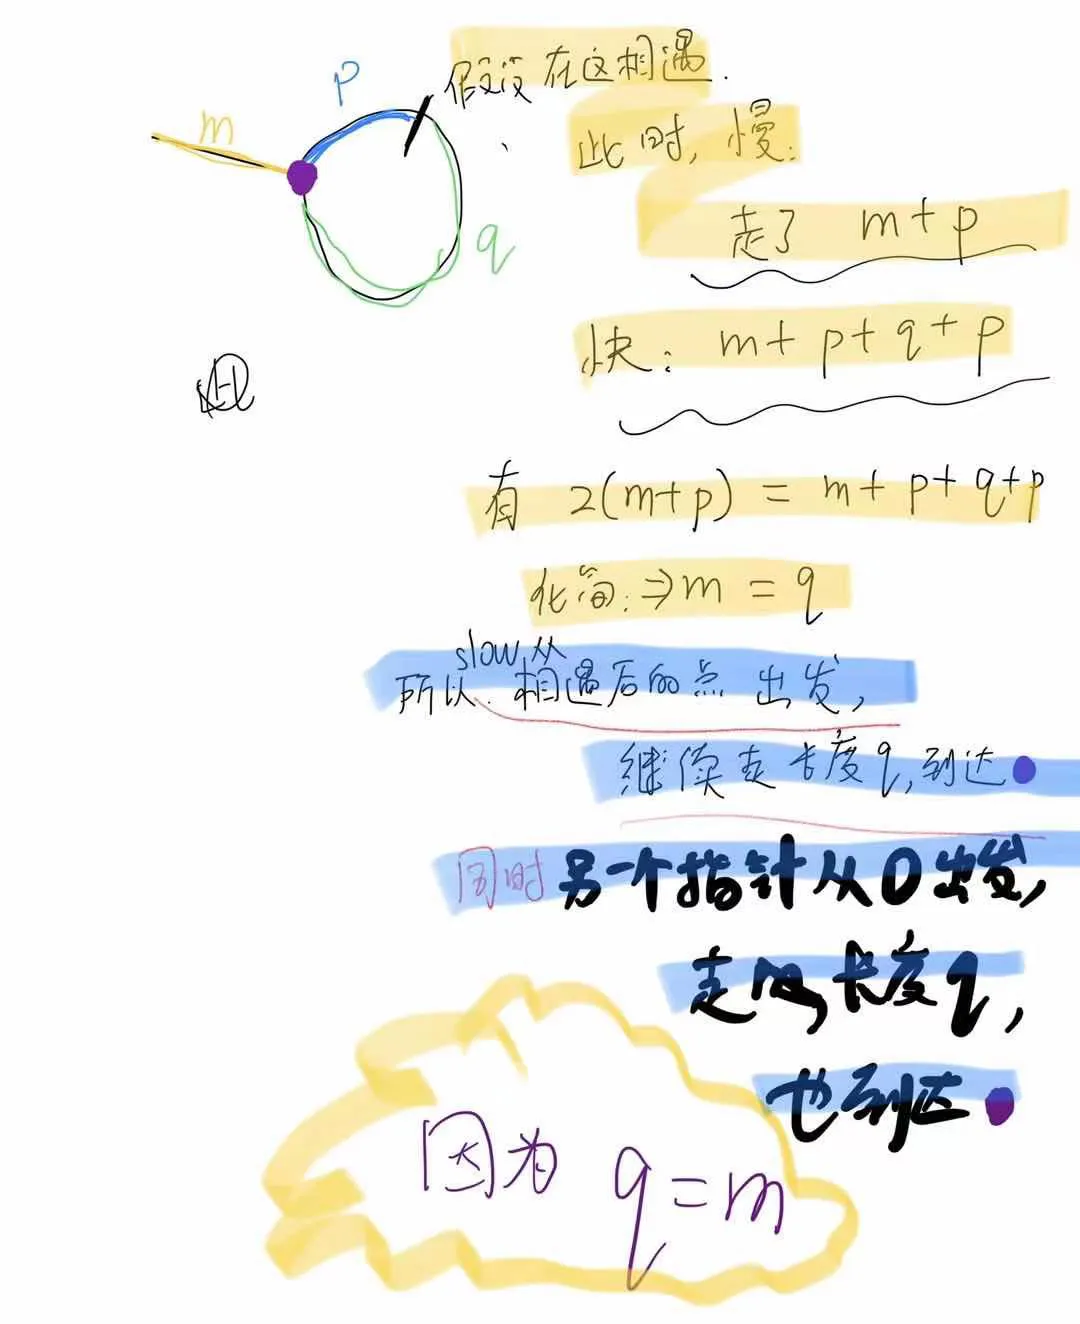 p
假设在这相遇.
m
此时, 慢:
走了 m+p
q
快: m+p+q+p
有 2(m+p) = m+p+q+p
化简: ⇒ m = q
slow 从
所以. 相遇后的点 出发,
继续走 长度 q, 到达
同时 另一个指针从 0 出发,
走 长度 q,
也到达
因为 q=m